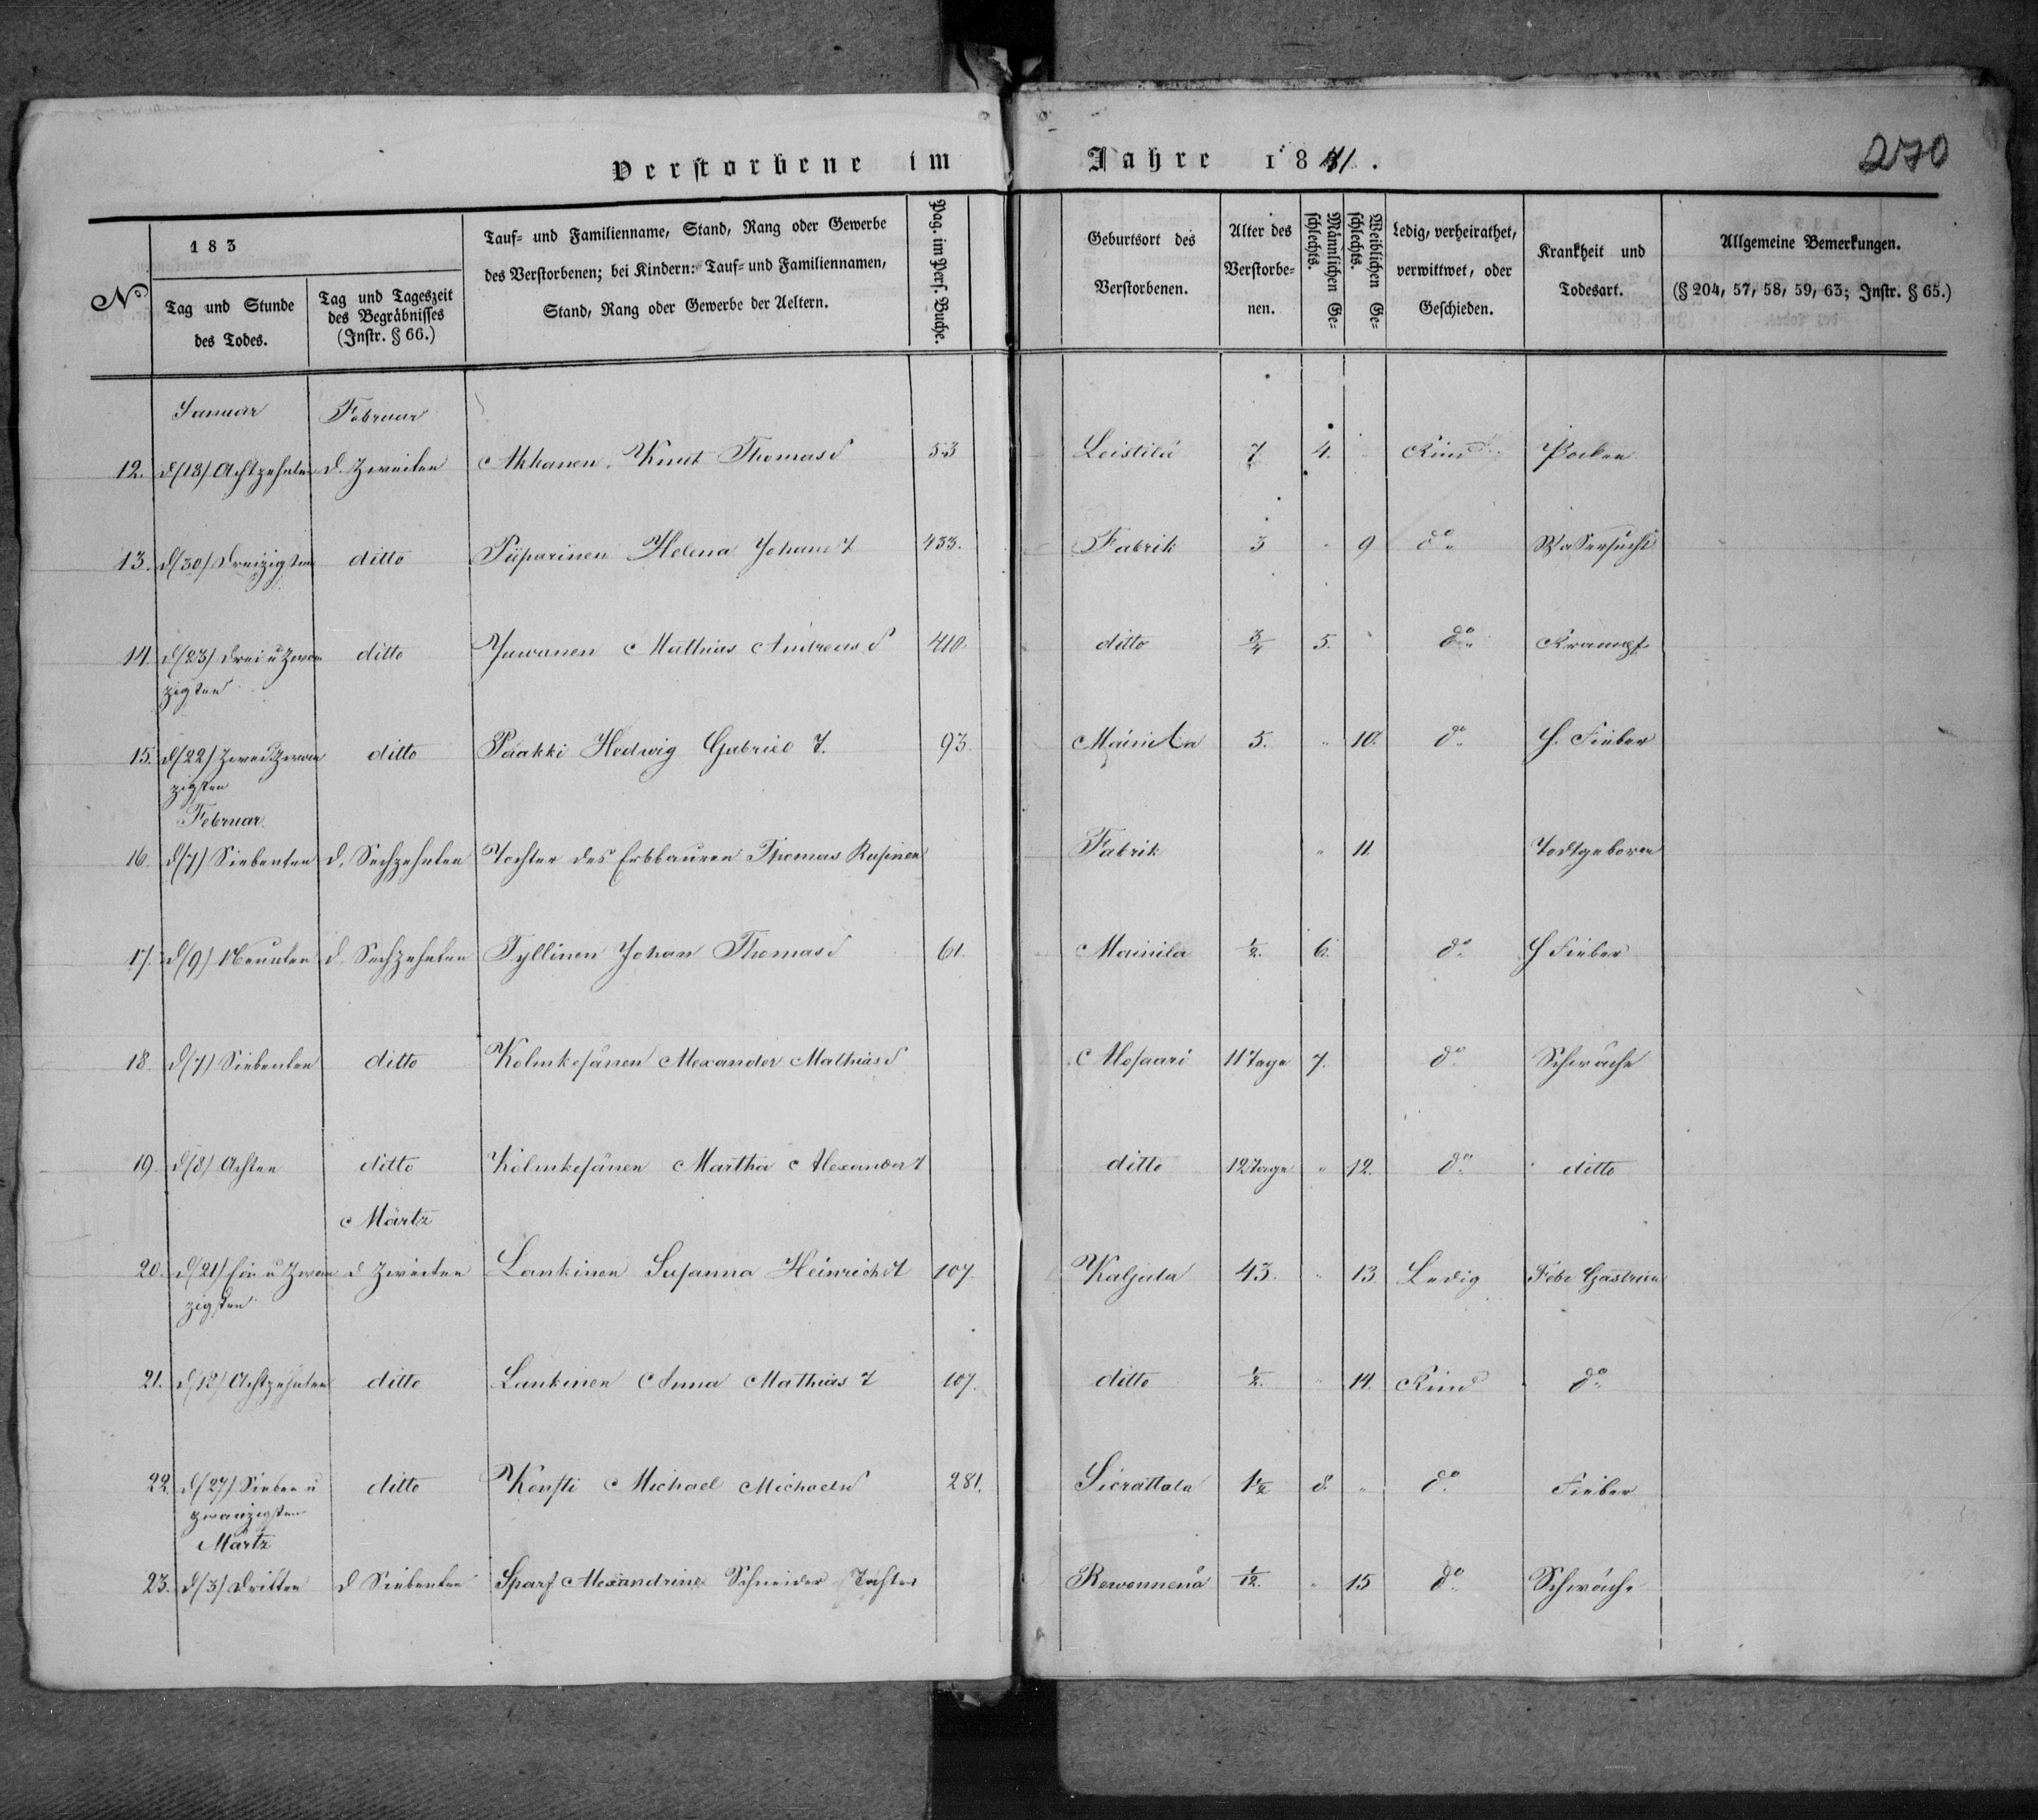 Verstorbene im Jahre 1841.
270
No
183
Tag und Stunde des Todes.
Tag und Tageszeit des Begräbnisses (Instr. § 66.)
Tauf- und Familienname, Stand, Rang oder Gewerbe
des Verstorbenen; bei Kindern: Tauf- und Familiennamen,
Stand, Rang oder Gewerbe der Aeltern.
Pag. im Pers. Buche.
Geburtsort des Verstorbenen.
Alter des Verstorbenen.
Männlichen Geschlechts.
Weiblichen Geschlechts.
Ledig, verheirathet, verwittwet, oder Geschieden.
Krankheit und Todesart.
Allgemeine Bemerkungen.
(§ 204, 57, 58, 59, 63; Instr. § 65.)
Januar Februar
12. d/18/ Achtzehnten d. Zweiten Akkanen Knut Thomas d 53 Leistilä 7 4. Kind Pocken
13. d/30/ Dreizigsten ditto Piiparinen Helena Johans t 433. Fabrik 3 " 9 do Wassersucht
14. d/23/ Drei u Zwan ditto Juwanen Mathias Andreas d 410. ditto 3/4 5. do Krampf
zigsten
15. d/22/ Zwei Zwan ditto Paakki Hedwig Gabriel t. 93. Mainila 5. " 10. do H. Fieber
zigsten
Februar
16. d/7/ Siebenten d. Sechzehnten Tochter des Erbbauren Thomas Rusinen Fabrik " 11. Todtgeboren
17. d/9/ Neunten d. Sechzehnten Tyllinen Johan Thomas d 61. Mainila 1/2. 6. do H Fieber
18. d/7/ Siebenten ditto Kolmkesänen Alexander Mathias d Alosaari 11 Tage 7. do Schwäche
19. d/8/ Achten ditto Kolmkesänen Martha Alexander t ditto 12 Tage " 12. do ditto
Märtz
20. d/21/ Ein u Zwan d Zweiten Lankinen Susanna Heinrich t 107. Kaljala 43. " 13. Ledig Febr Gastrica
zigsten
21. d/18/ Achtzehnten ditto Lankinen Anna Mathias t 107. ditto 1/2. " 14. Kind do
22. d/27/ Sieben u ditto Konsti Michael Michaels d 281. Sierattala 1 1/2 8. " do Fieber
zwanzigsten
Märtz
23. d/3/ Dritten d Siebenten Sparf Alexandrine Schneider Tochter Rewonnenä 1/12. " 15 do Schwäche